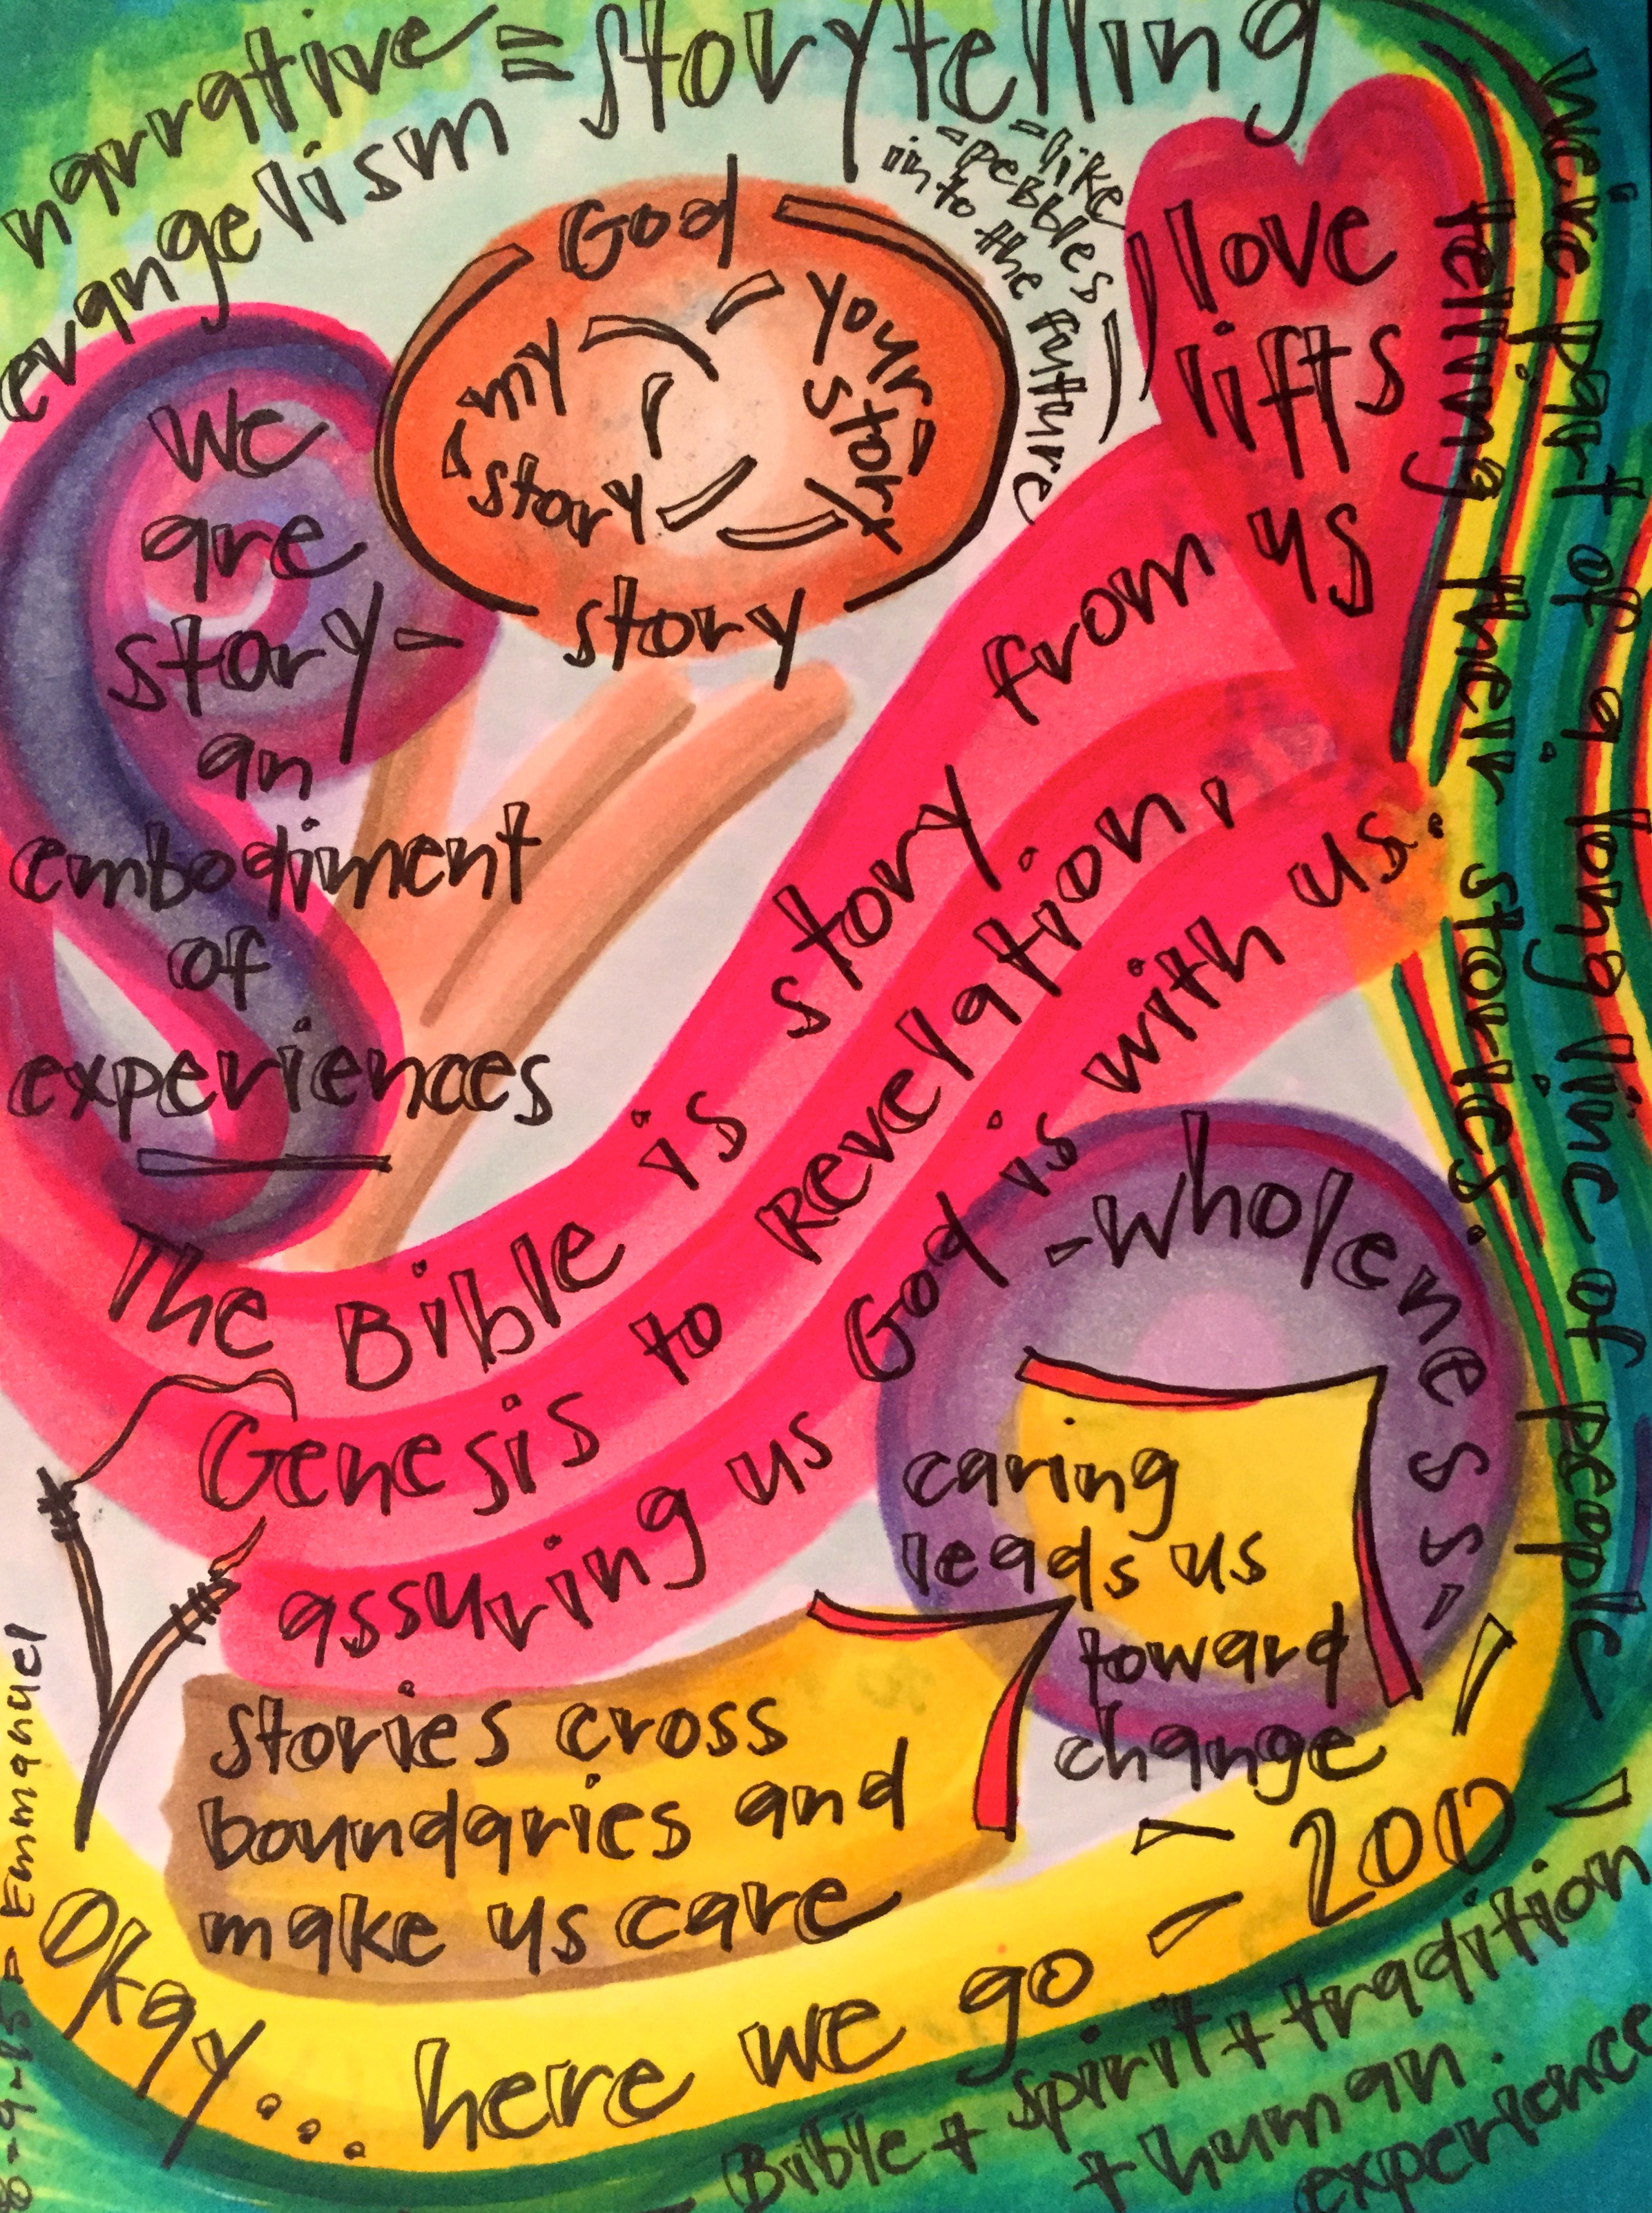 narrative = storytelling
evangelism
= like
- pebbles
into the future
God
my
story
your
story
story
love
lifts
us
we
are
story -
an
embodiment
of
experiences
we're part of a long line of people
telling their stories.
The Bible is story from us
Genesis to Revelation,
assuring us God is with us.
- wholeness -
caring
leads us
toward
change
stories cross
boundaries and
make us care
Okay... here we go - 200
- Bible + spirit + tradition
+ human
experience
= Emmanuel